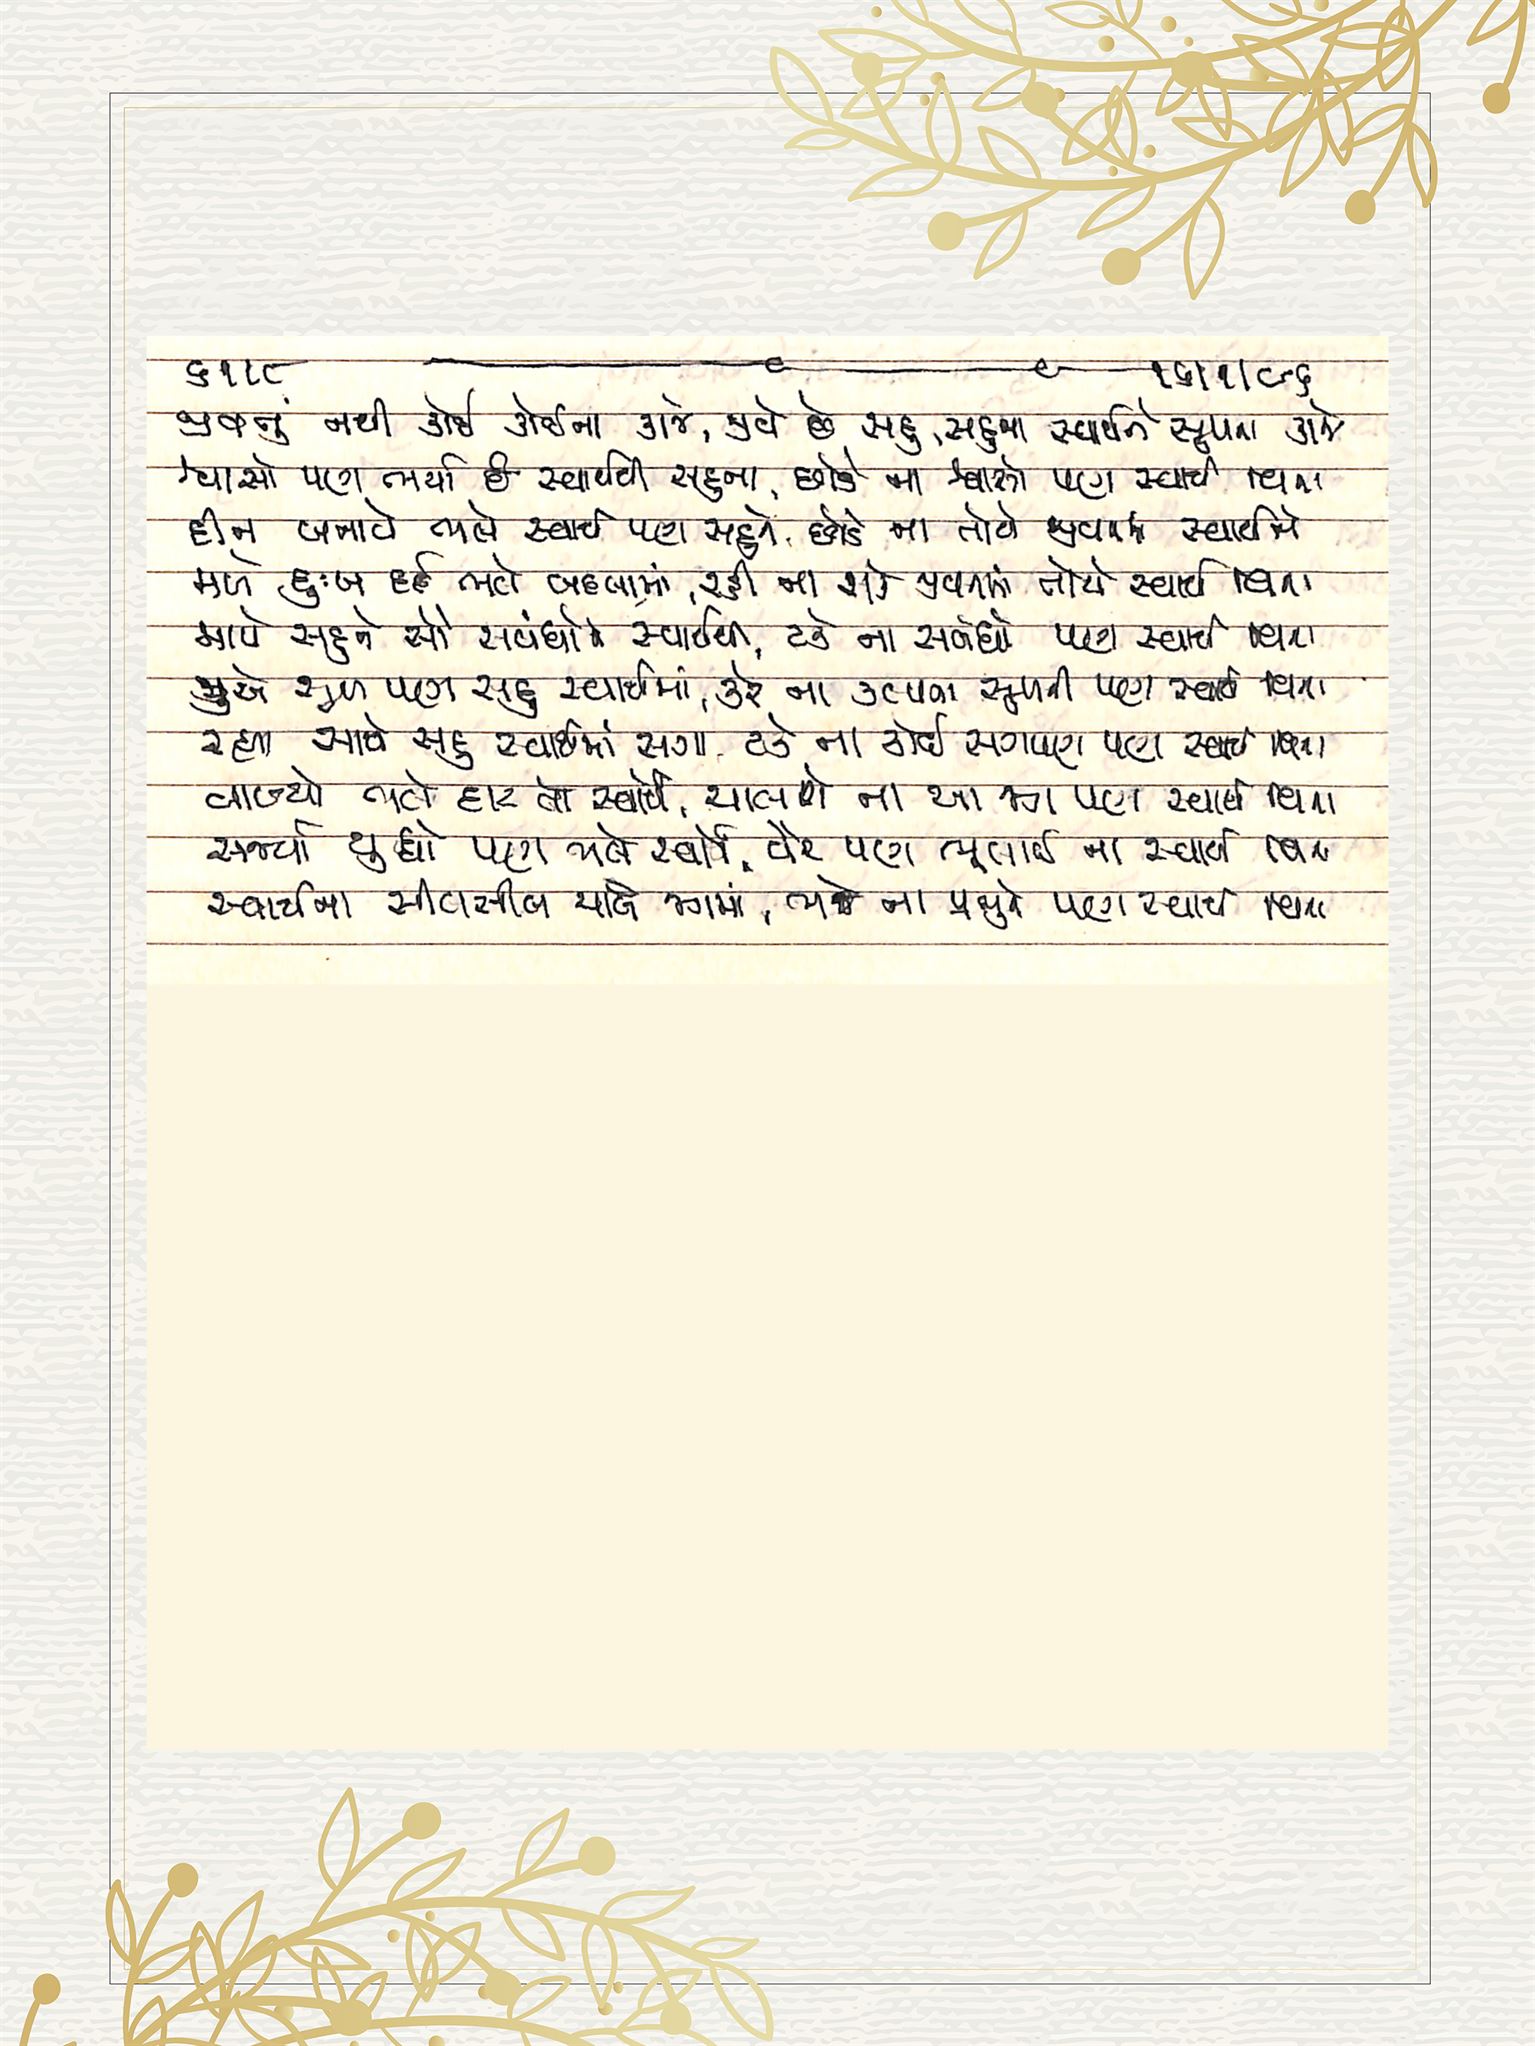 ૬૧૮૮ ૧૬/૧/૯૬
જીવનું નથી કોઈ કોઈના કાજે, જીવે છે સહુ, સહુના સ્વાર્થને સુખના કાજે
શ્વાસો પણ ભર્યા છે સ્વાર્થથી સહુના, છોડે ના શ્વાસો પણ સ્વાર્થ વિના
હીન બનાવે ભલે સ્વાર્થ પણ સહુને, છોડે ના તોયે જીવનમાં સ્વાર્થને
મળે દુઃખ દર્દ ભલે બદલામાં, રહી ના શકે જીવનમાં તોયે સ્વાર્થ વિના
માપે સહુને સૌ સબંધોને સ્વાર્થથી, ટકે ના સબંધો પણ સ્વાર્થ વિના
જુએ સુખ પણ સહુ સ્વાર્થમાં, કરે ના કલ્પના સુખની પણ સ્વાર્થ વિના
રહ્યા સાથે સહુ સ્વાર્થમાં સગા, ટકે ના કોઈ સગપણ પણ સ્વાર્થ વિના
લાગ્યો ભલે હાર તો સ્વાર્થે, ચાલશે ના આ જગ પણ સ્વાર્થ વિના
સર્જ્યા યુદ્ધો પણ ભલે સ્વાર્થે, વેર પણ ભૂલાઈ ના સ્વાર્થ વિના
સ્વાર્થના સીલસીલા ચાલે જગમાં, ભજે ના પ્રભુને પણ સ્વાર્થ વિના